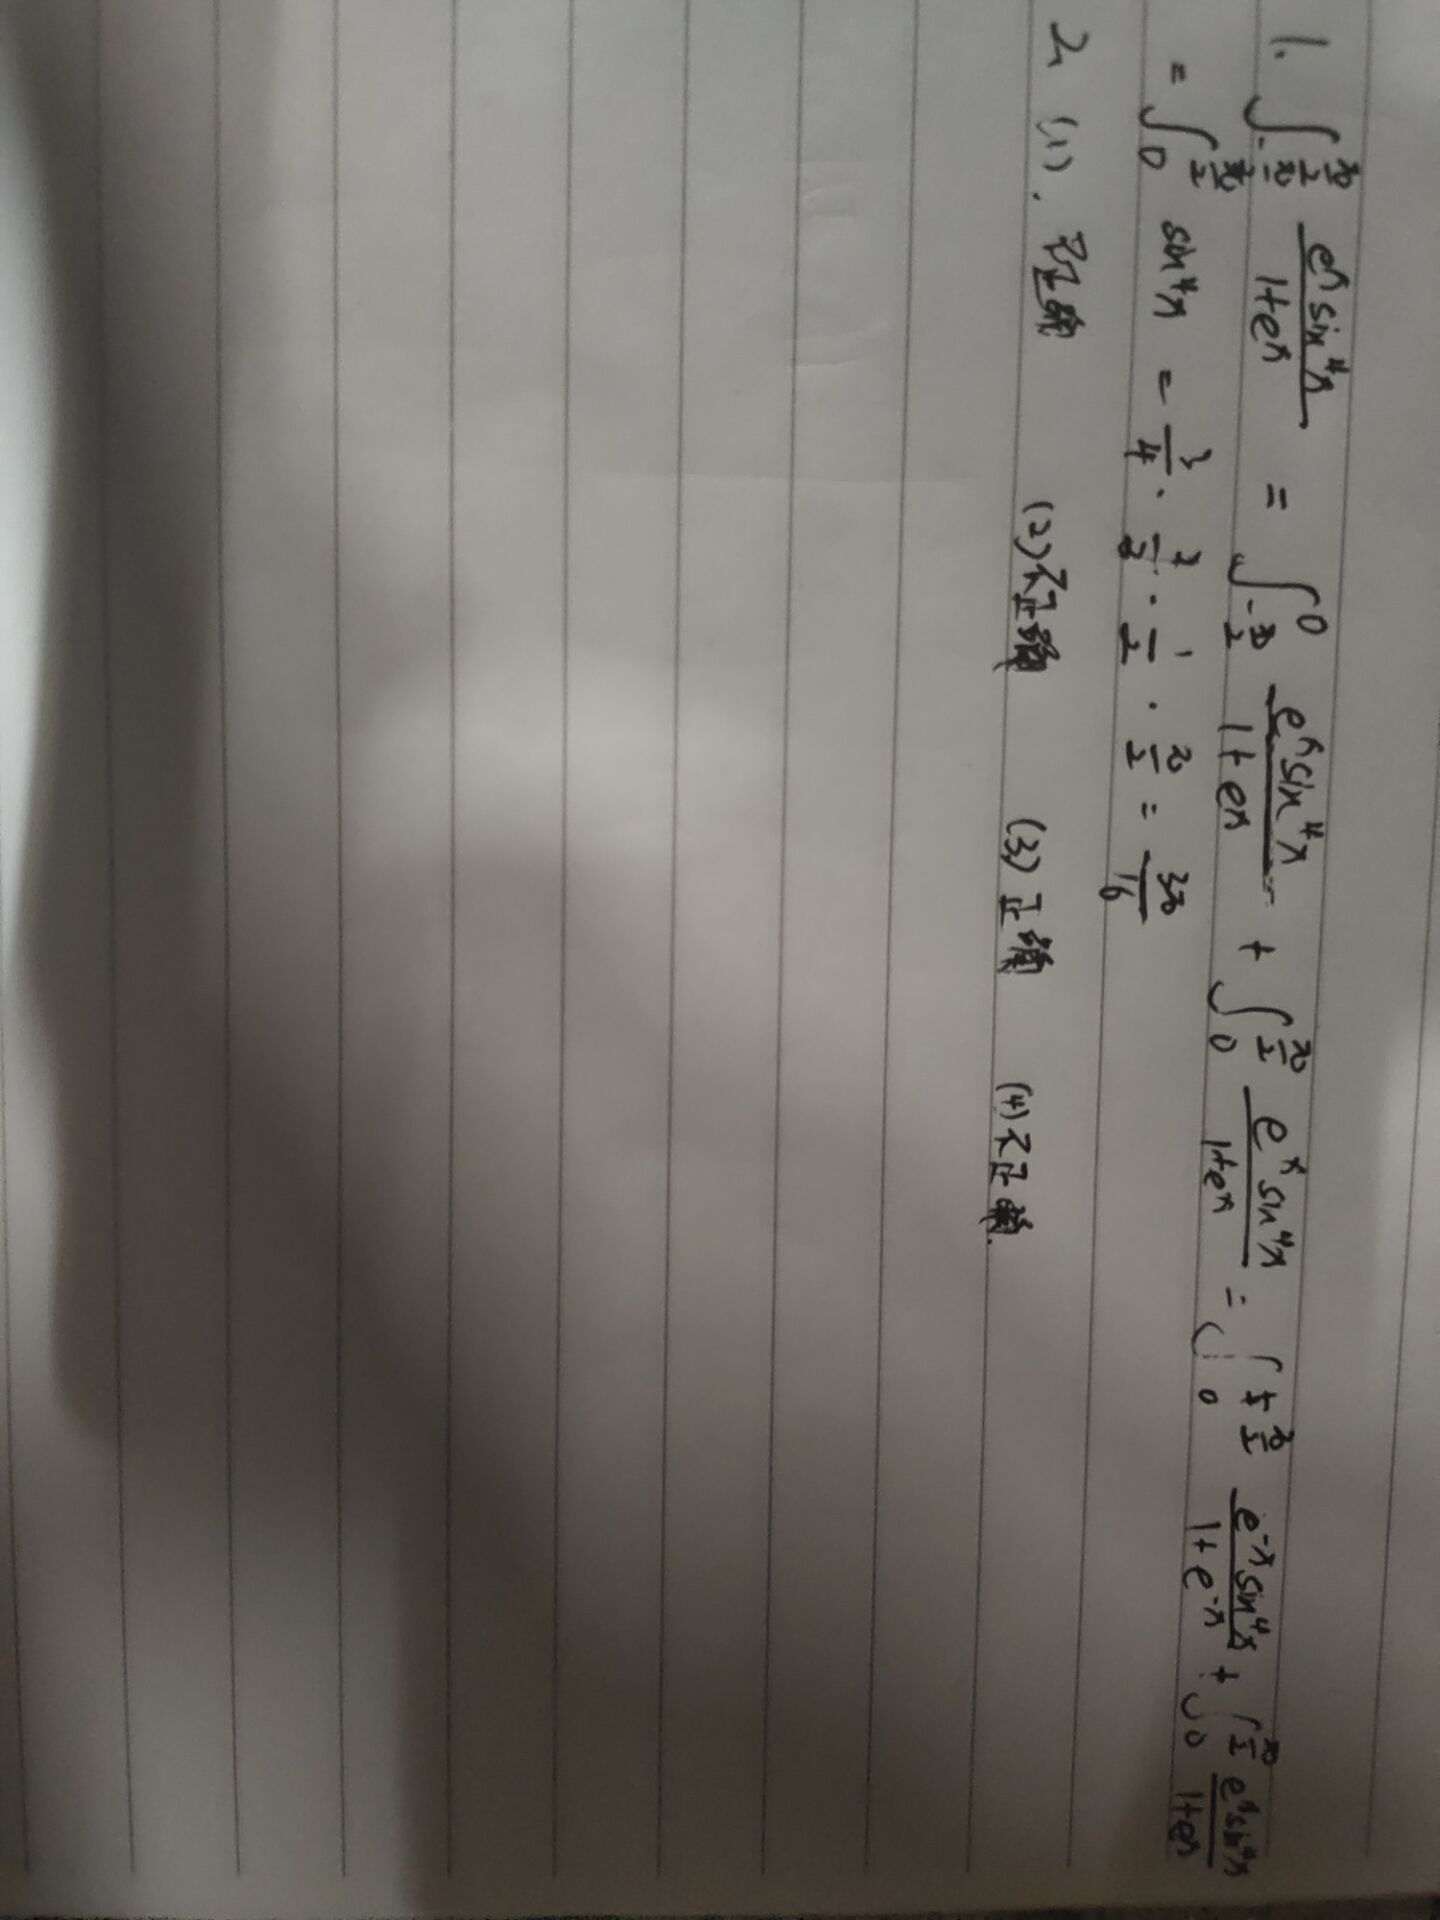 1. ∫_{-π/2}^{π/2} e^x sin^4x / 1+e^x = ∫_{-π/2}^{0} e^x sin^4x / 1+e^x + ∫_0^{π/2} e^x sin^4x / 1+e^x = ∫_0^{+π/2} e^{-x} sin^4x / 1+e^{-x} + ∫_0^{π/2} e^x sin^4x / 1+e^x
= ∫_0^{π/2} sin^4x = 3/4 · 1/2 · π/2 = 3π/16
2、(1). 不正确 (2) 不正确 (3) 正确 (4) 不正确.